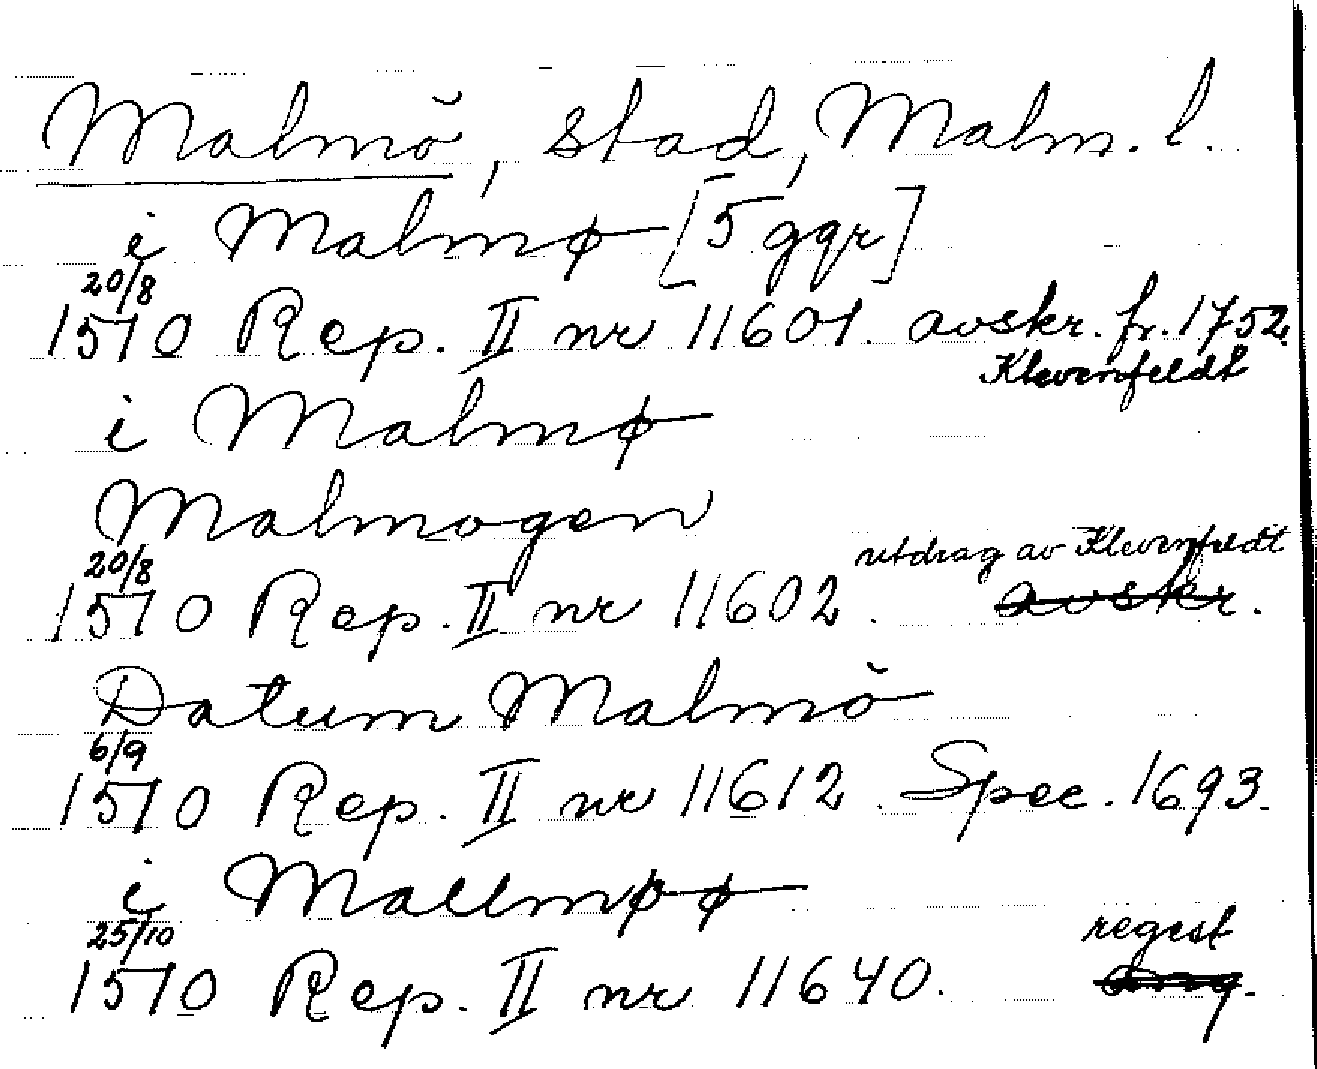 Malmö, stad, Malm. l.
i Malmø [5 ggr]
20/8
1570 Rep. II nr 11601. avskr. fr. 1752.
Klevenfeldt
i Malmø
Malmogen
20/8 utdrag av Klevenfeldt
1570 Rep. II nr 11602. avskr.
Datum Malmö
6/9
1570 Rep. II nr 11612. Spec. 1693.
i Mallmøø
25/10 regest
1570 Rep. II nr 11640.